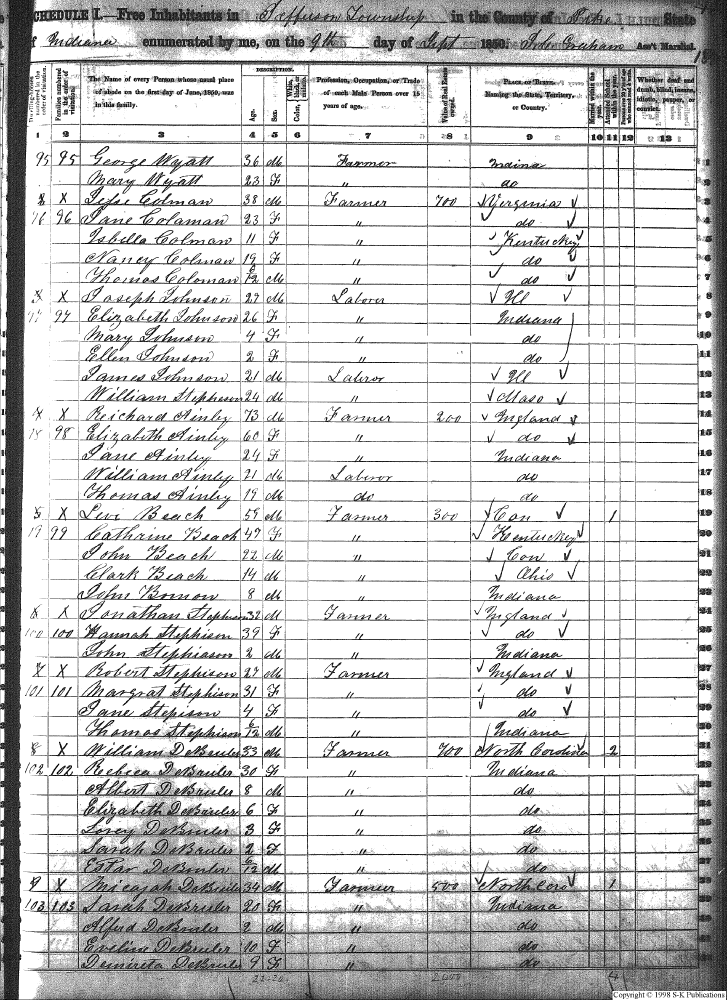 SCHEDULE I.—Free Inhabitants in Jefferson Township in the County of Pike State
of Indiana enumerated by me, on the 9th day of Sept 1850. John Graham Ass't Marshal.
DESCRIPTION.
Dwelling-houses numbered in the order of visitation. Families numbered in the order of visitation. The Name of every Person whose usual place of abode on the first day of June, 1850, was in this family. Age. Sex. Color, White, black, or mulatto. Profession, Occupation, or Trade of each Male Person over 15 years of age. Value of Real Estate owned. PLACE OF BIRTH. Naming the State, Territory, or Country. Married within the year. Attended School within the year. Whether deaf and dumb, blind, insane, idiotic, pauper, or convict.
1 2 3 4 5 6 7 8 9 10 11 12 13
95 95 George Wyatt 36 M Farmer Indina 1
Mary Wyatt 23 F " do 2
X Jesse Colman 38 M Farmer 700 Vergenia 3
96 Jane Colaman 23 F " do 4
Isbella Colman 11 F " Kentuckey 5
Nancy Colman 19 F " do 6
Thomas Coloman 6/12 M " do 7
X X Joseph Johnson 27 M Laborer Ill 8
97 97 Elizabeth Johnson 26 F " Indiana 9
Mary Johnson 4 F " do 10
Ellen Johnson 2 F " do 11
James Johnson 21 M Laberor Ill 12
William Stepheson 24 M " Maso 13
X X Reichard Ainley 73 M Farmer 200 Ingland 14
98 Elizabeth Ainley 60 F " do 15
Jane Ainley 24 F " Indiana 16
William Ainley 21 M Laberor do 17
Thomas Ainley 19 M do do 18
X Levi Beach 59 M Farmer 300 Con 1 19
99 Cathrine Beach 47 F " Kentuckey 20
John Beach 22 M " Con 21
Clark Beach 14 M " Ohio 22
John Bomon 8 M Indiana 23
X X Jonathan Stephison 32 M Farmer Ingland 24
100 100 Hannah Stephison 39 F " do 25
John Stephiason 2 M " Indiana 26
X X Robert Stephison 27 M Farmer Ingland 27
101 101 Margrat Stephison 31 F " do 28
Jane Stepison 4 F " do 29
Thomas Stephison 6/12 M " Indiana 30
X William DeBruler 33 M Farmer 700 North Cordina 2 31
102 102 Rebica DeBruler 30 F " Indiana 32
Albert DeBruler 8 M " do 33
Elizabeth DeBruler 6 F " do 34
Lovey DeBruler 3 F " do 35
Sarah DeBruler 2 F " do 36
Estar DeBruler 6/12 M " do 37
X Micajah DeBruler 34 M Farmer 500 North Caro 1 38
103 103 Sarah DeBruler 20 F " Indiana 39
Alferd DeBruler 2 M " do 40
Eveline DeBruler 10 F " do 41
Demireta DeBruler 9 F " do 42
4
Copyright © 1998 S-K Publications